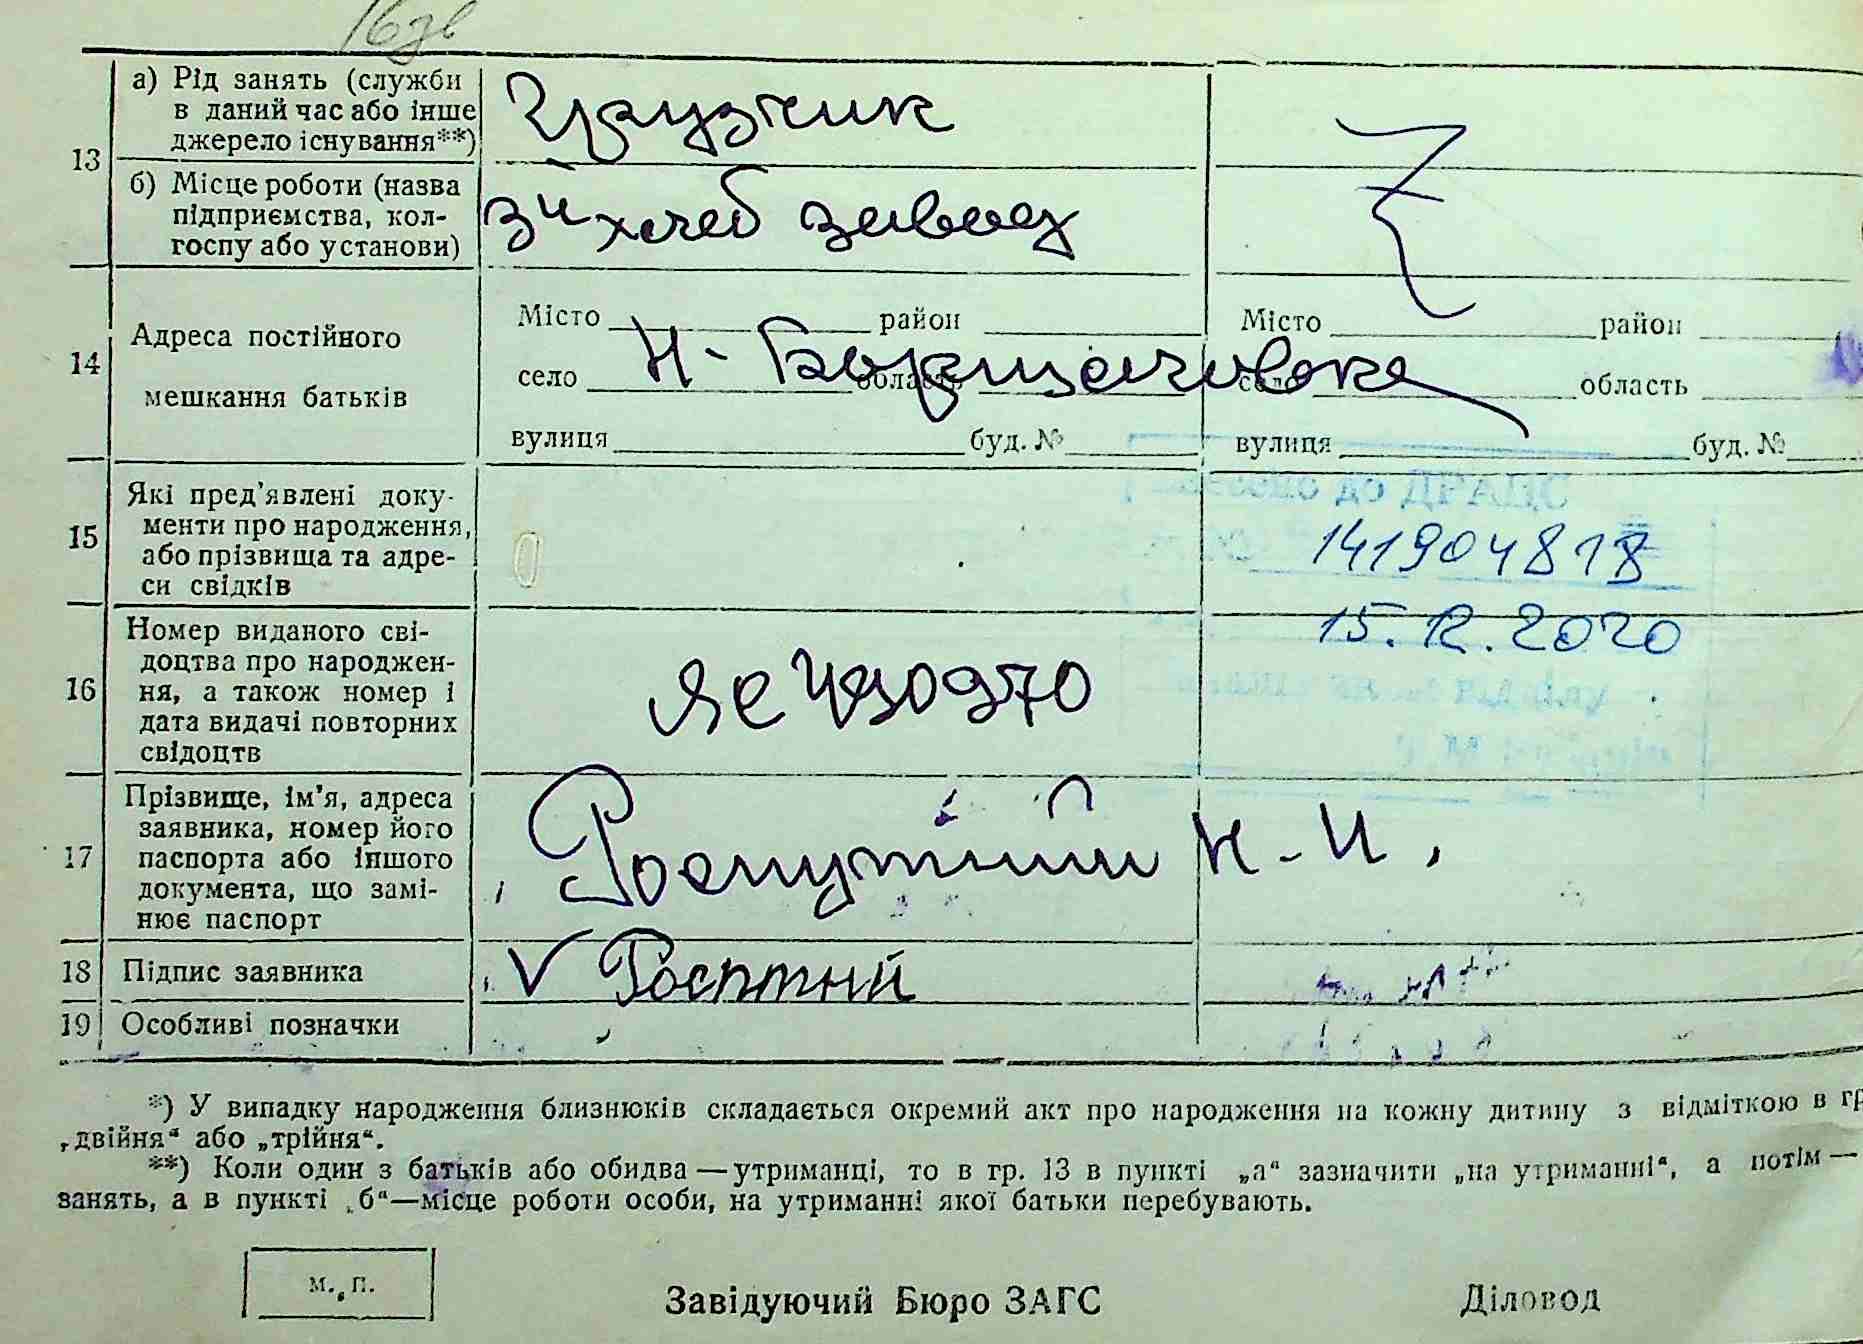 16зв
13 а) Рід занять (служби в даний час або інше джерело існування**) Грузчик
б) Місце роботи (назва підприємства, колгоспу або установи) 3й хлеб завод
14 Адреса постійного мешкання батьків
Місто район Місто район
село Н-Борщагивка область село область
вулиця буд. № вулиця буд. №
15 Які пред'явлені документи про народження, або прізвища та адреси свідків
внесено до ДРАЦС
141904818
15.12.2020
16 Номер виданого свідоцтва про народження, а також номер і дата видачі повторних свідоцтв
17 Прізвище, ім'я, адреса заявника, номер його паспорта або іншого документа, що замінює паспорт
Н-И.
18 Підпис заявника V
19 Особливі позначки
*) У випадку народження близнюків складається окремий акт про народження на кожну дитину з відміткою в гр
„двійня“ або „трійня“.
**) Коли один з батьків або обидва — утриманці, то в гр. 13 в пункті „а“ зазначити „на утриманні“, а потім —
занять, а в пункті „б“—місце роботи особи, на утриманні якої батьки перебувають.
М. П. Завідуючий Бюро ЗАГС Діловод